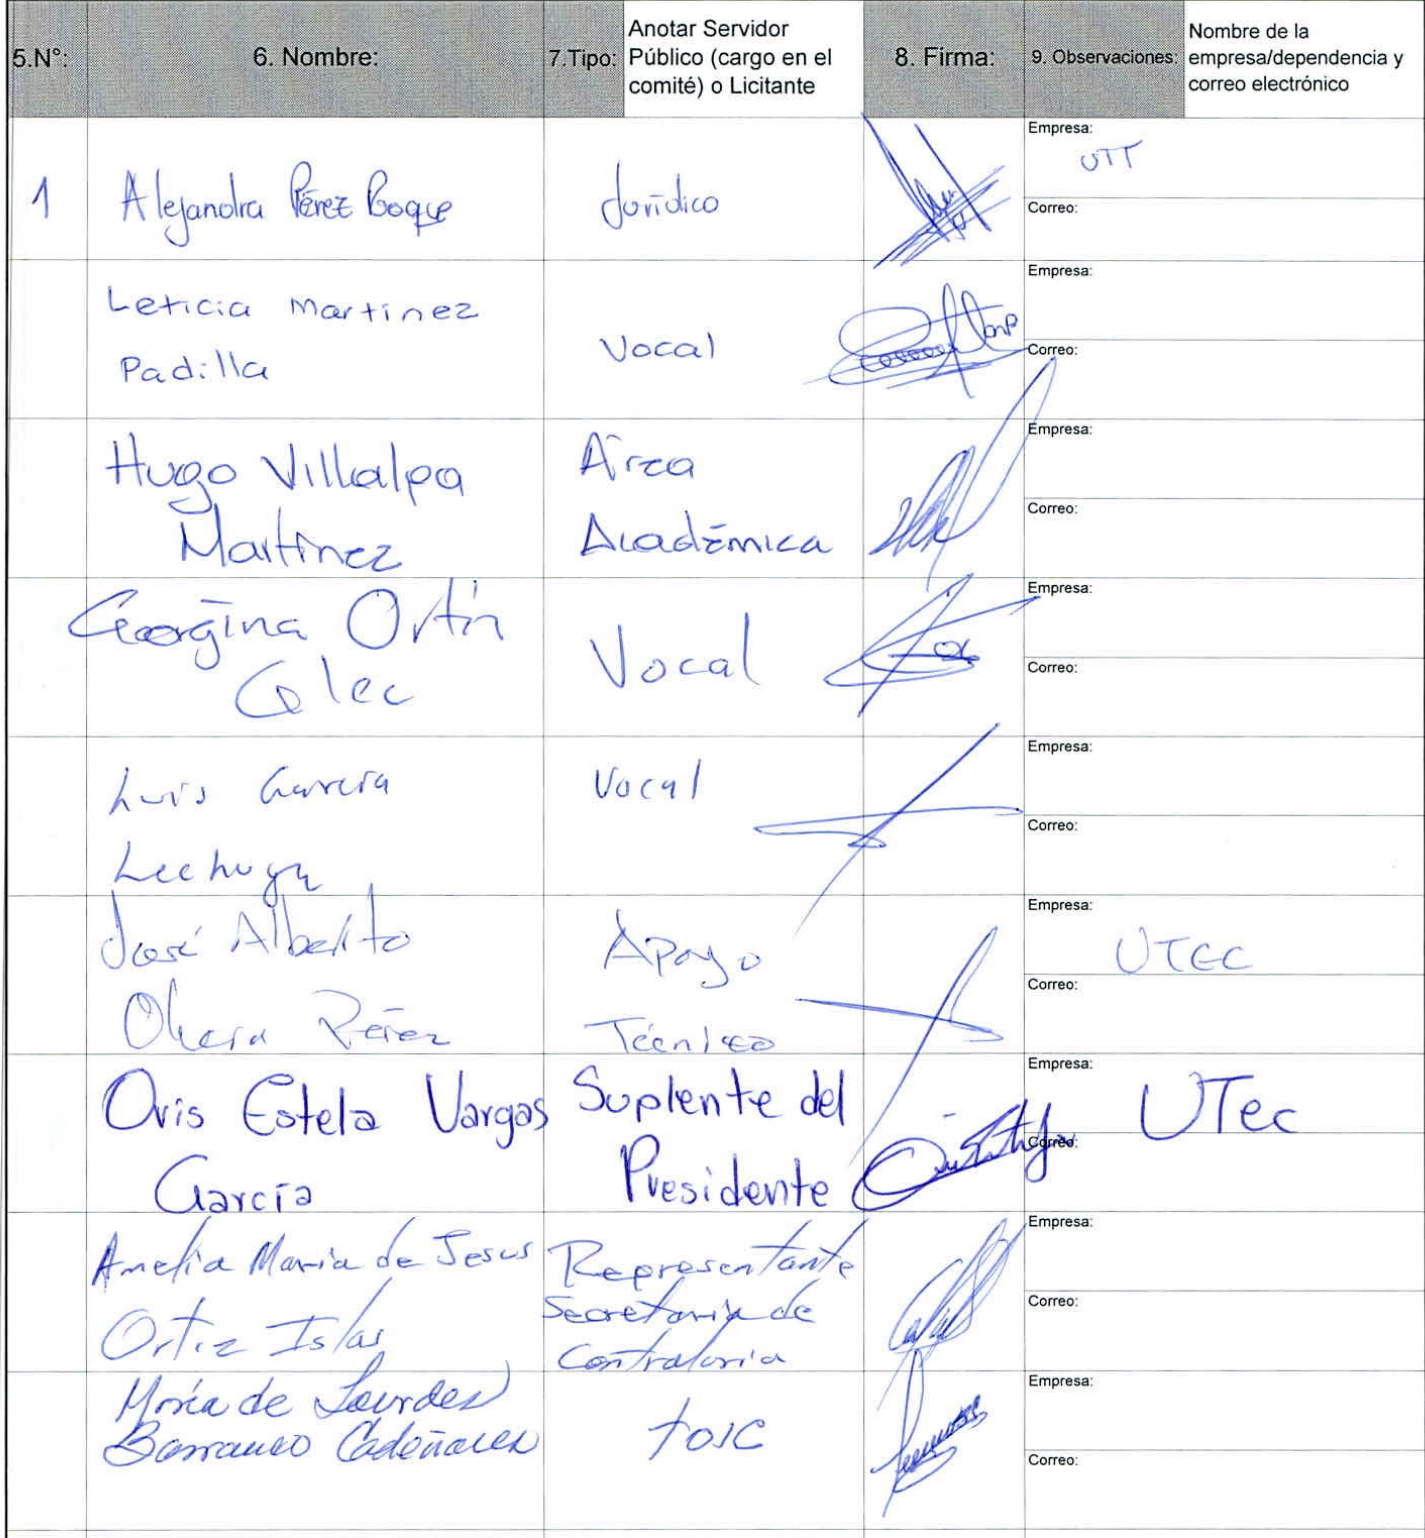 5.N°:
6. Nombre:
7.Tipo:
Anotar Servidor
Público (cargo en el
comité) o Licitante
8. Firma:
9. Observaciones:
Nombre de la
empresa/dependencia y
correo electrónico
1
Alejandra Pérez Roque
Jurídico
Empresa:
UTT
Correo:
Leticia Martinez
Padilla
Vocal
Empresa:
Correo:
Hugo Villalpa
Martínez
Área
Académica
Empresa:
Correo:
Georgina
Vocal
Empresa:
Correo:
Luis García
Lechuga
Vocal
Empresa:
Correo:
José Alberto
Olvera Pérez
Apoyo
Técnico
Empresa:
UTEC
Correo:
Oris Estela Vargas
García
Suplente del
Presidente
Empresa:
UTec
Correo:
Amelia Maria de Jesus
Ortiz Islas
Representante
Secretaria de
Contraloria
Empresa:
Correo:
María de Lourdes
Barranco
Empresa:
Correo: